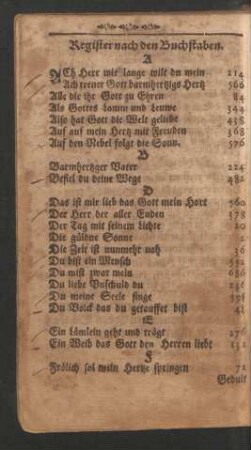 Register nach den Buchstaben.
A
Ach Herr wie lange wilt du mein 214
Ach treuer Gott barmhertzigs Hertz 566
Alle die ihr Gott zu Ehren 84
Als Gottes Lamm und Leuwe 343
Also hat Gott die Welt geliebt 438
Auf auf mein Hertz mit Freuden 368
Auf den Nebel folgt die Sonn. 576
B
Barmhertzger Vater 224
Befiel du deine Wege 482
D
Das ist mir lieb das Gott mein Hort 560
Der Herr der aller Enden 378
Der Tag mit seinem lichte 20
Die güldne Sonne 2
Die Zeit ist nunmehr nah 36
Du bist ein Mensch 552
Du must zwar mein 686
Du liebe Unschuld du
Du meine Seele singe
Du Volck das du getauffet bist 41
E
Ein lämlein geht und trägt
Ein Weib das Gott den Herren liebt 131
F
Frölich sol mein Hertze springen 71
Gedult